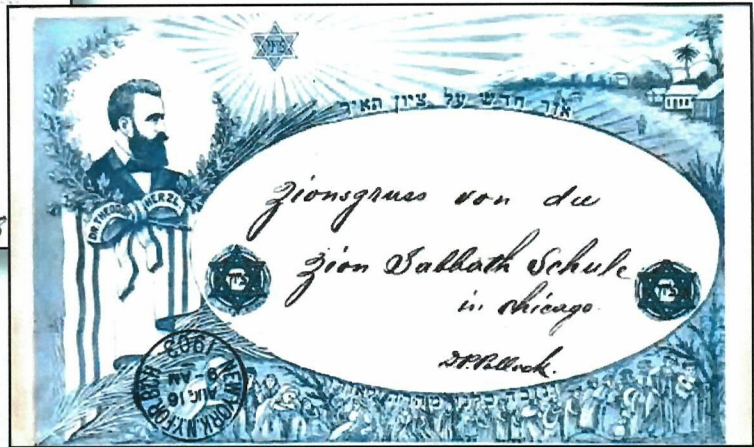 ציון
אור חדש על ציון האיר
DR THEODOR HERZL
Zionsgruss von die
Zion Sabbath Schule
in Chicago.
ציון
ציון
D.P. Pollock.
NEW YORK, N.Y. FOR. BCH
AUG 16
8-AM
1903